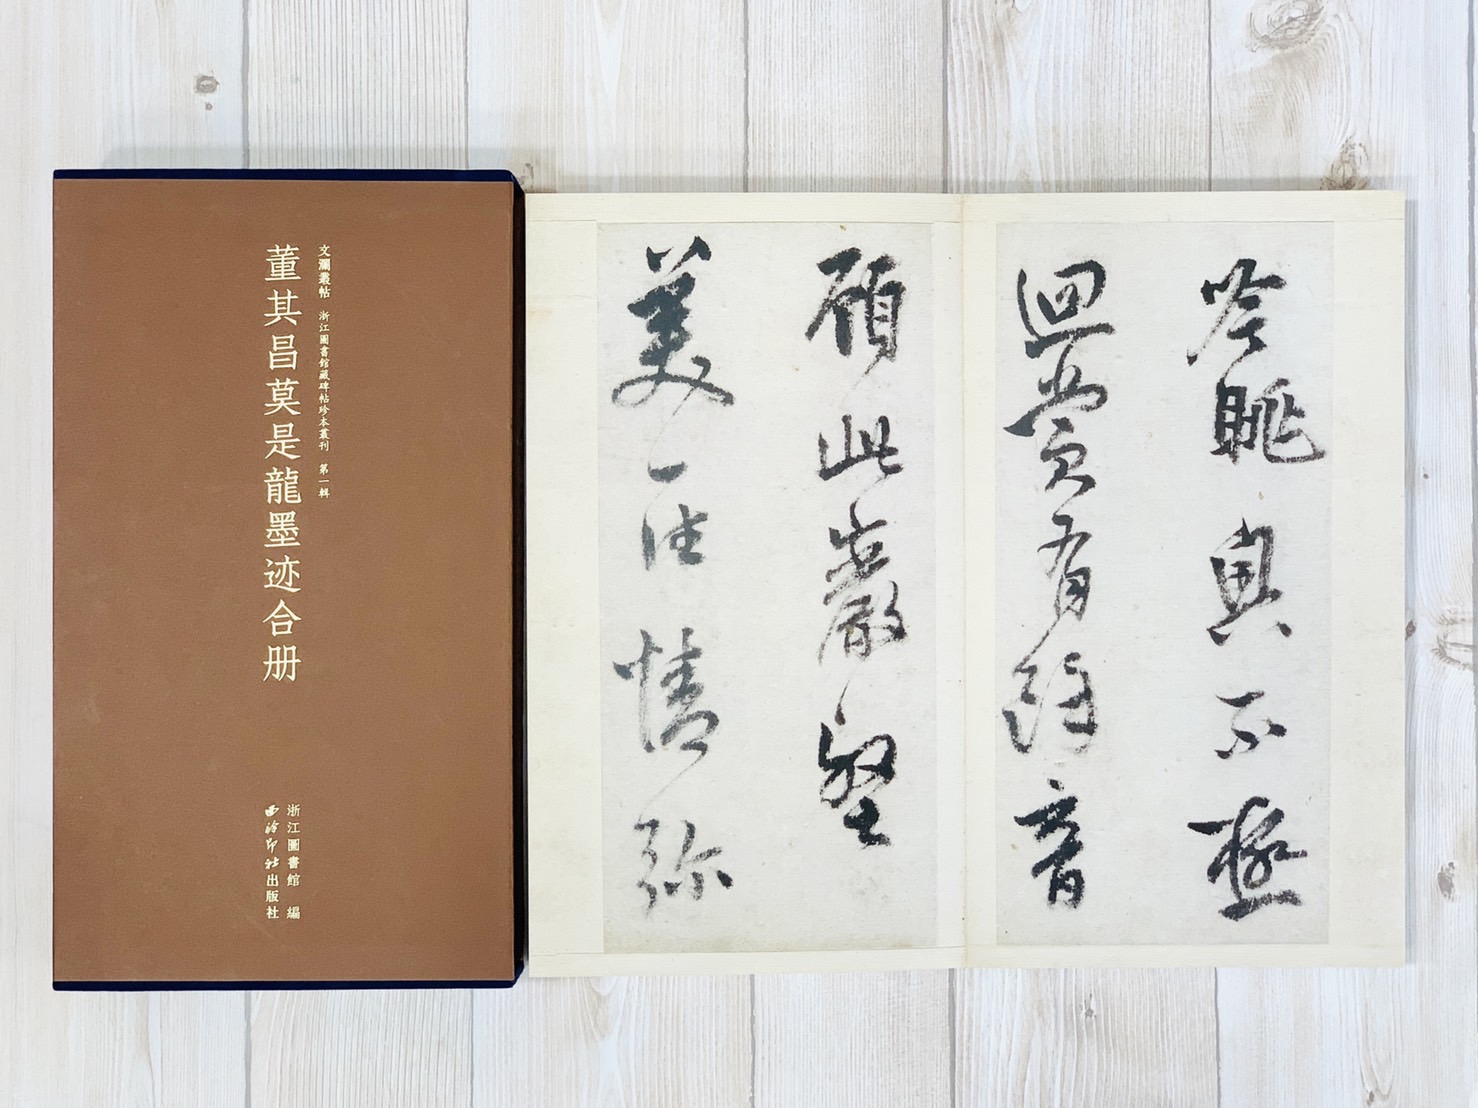 文瀾叢帖 浙江圖書館藏碑帖珍本叢刊 第一輯
董其昌莫是龍墨迹合册
浙江圖書館 編
西泠印社出版社
吟眺興不極
迴賞有音
顧此巖壑
美一往情弥